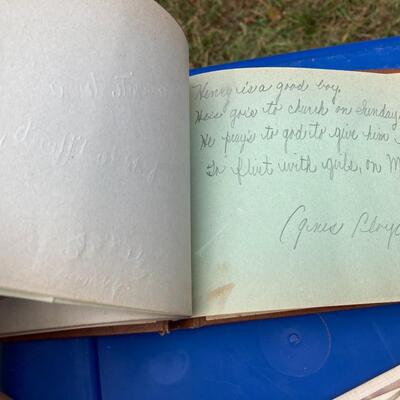 Henry is a good boy,
He's goes to church on Sunday
He pray's to god to give him
To flirt with girls, on M
Agnes Lloyd